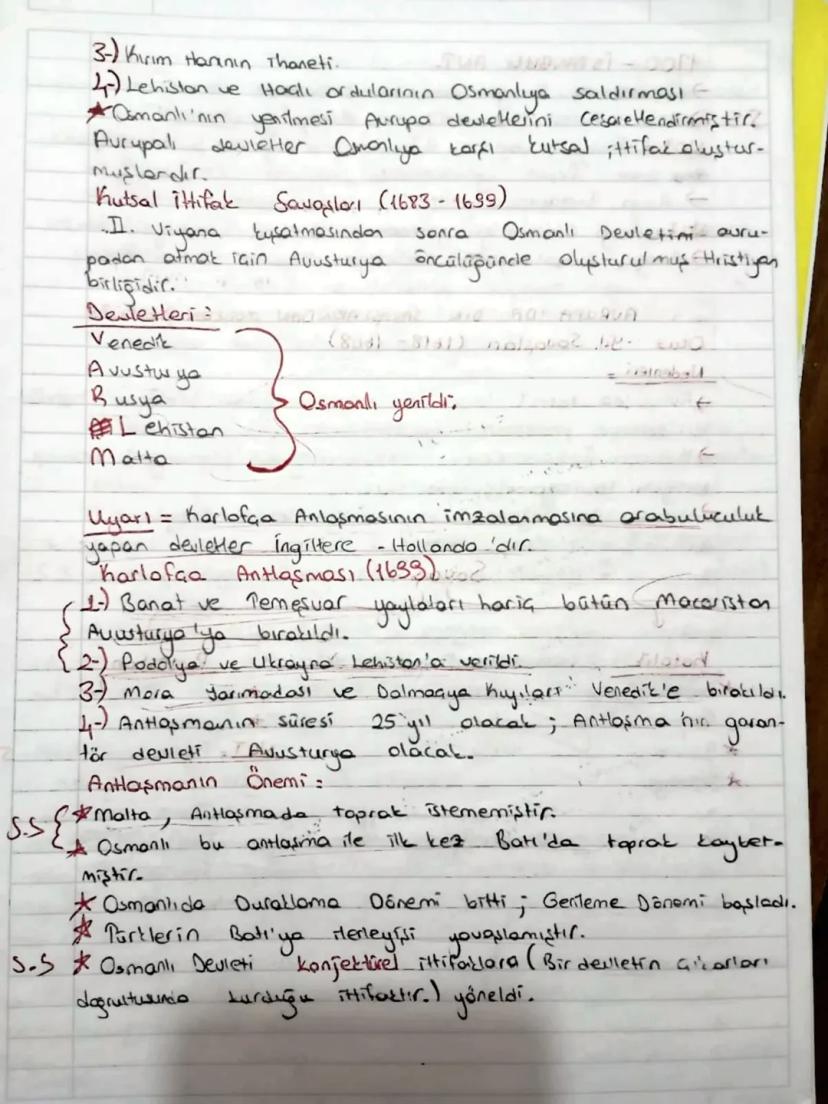 3-) Kırım Hanının ihaneti.
4-) Lehistan ve Haçlı ordularının Osmanlıya saldırması
★ Osmanlı'nın yenilmesi Avrupa devletlerini cesaretlendirmiştir.
Avrupalı devletler Osmanlıya karşı kutsal ittifak oluştur-
muşlardır.
Kutsal İttifak Savaşları (1683 - 1699)
II. Viyana kuşatmasından sonra Osmanlı Devletini avru-
padan atmak için Avusturya öncülüğünde oluşturulmuş Hristiyan
birliğidir.
Devletleri:
Venedik
Avusturya
Rusya
Lehistan
Malta
Osmanlı yenildi.
Uyarı = Karlofça Anlaşmasının imzalanmasına arabuluculuk
yapan devletler İngiltere - Hollanda'dır.
Karlofça Antlaşması (1699)
1-) Banat ve Temeşvar yaylaları hariç bütün Macaristan
Avusturya'ya bırakıldı.
2-) Podolya ve Ukrayna Lehistan'a verildi.
3-) Mora Yarımadası ve Dalmaçya Kıyıları Venedik'e bırakıldı.
4-) Antlaşmanın süresi 25 yıl olacak; Antlaşma'nın garan-
tör devleti Avusturya olacak.
Antlaşmanın Önemi:
S.S ★ Malta, Antlaşmada toprak istememiştir.
★ Osmanlı bu antlaşma ile ilk kez Batı'da toprak kaybet-
miştir.
★ Osmanlıda Duraklama Dönemi bitti; Gerileme Dönemi başladı.
★ Türklerin Batı'ya ilerleyişi yavaşlamıştır.
S.S ★ Osmanlı Devleti konjektürel ittifaklara (Bir devletin çıkarları
doğrultusunda kurduğu ittifaktır.) yöneldi.